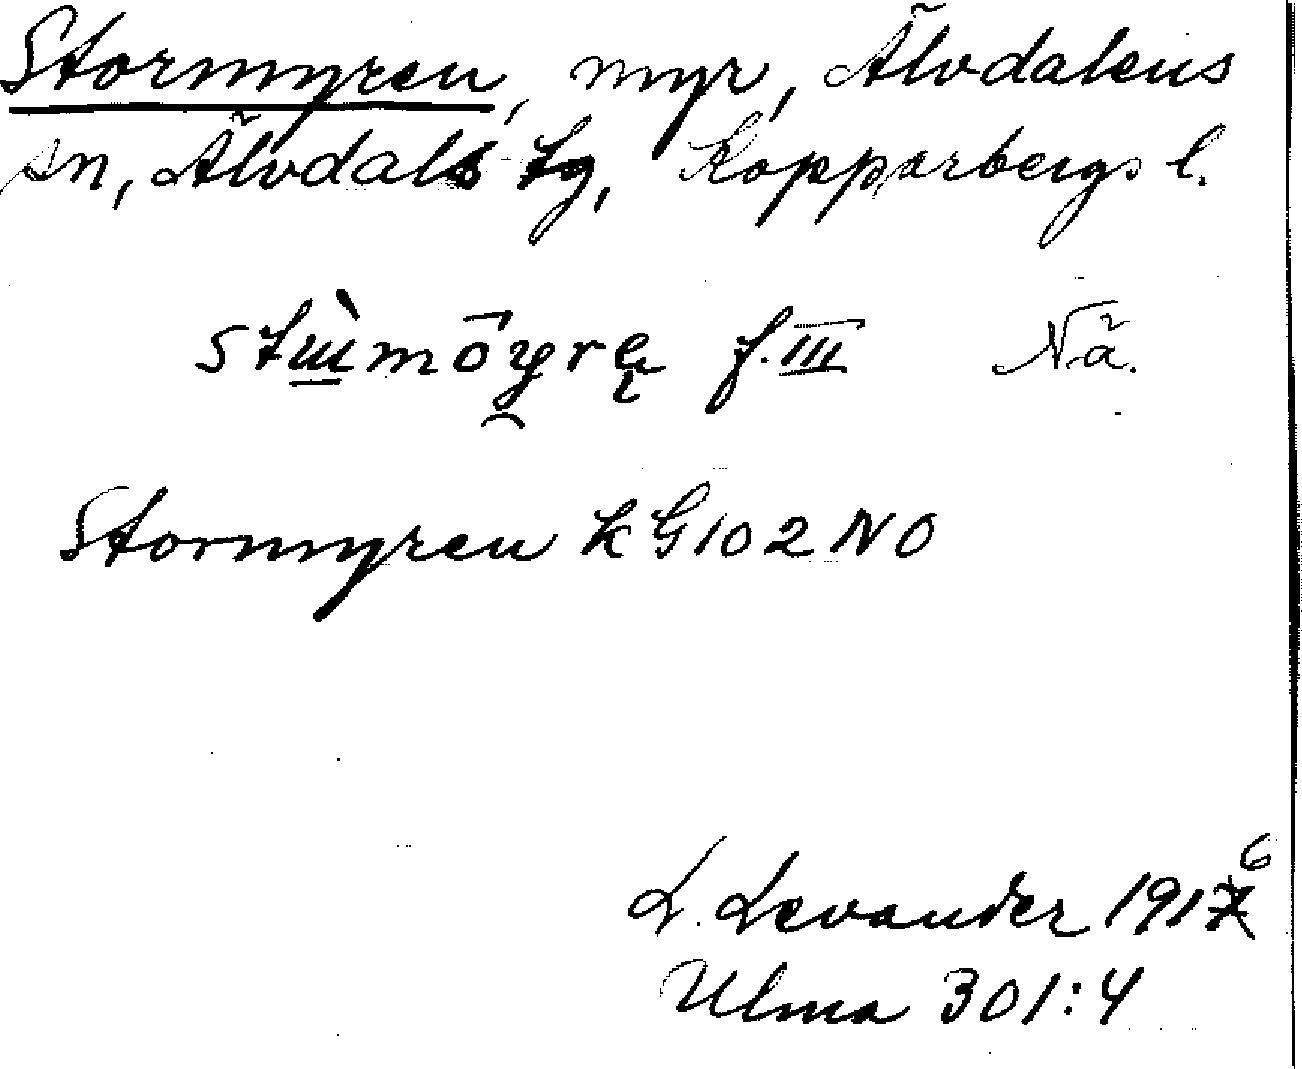 Stormyren, myr, Älvdalens
sn, Älvdals tg, Kopparbergs l.
f. III Nä.
Stormyren k G 102 NO
L. Levander 1916
Ulma 301:4